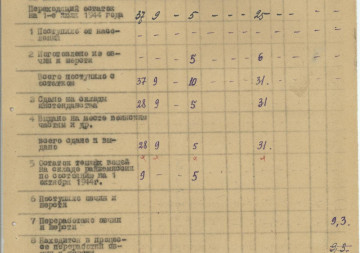 Переходящий остаток
на 1-е июля 1944 года 37 9 - 5 - - 25 - - - - -
1 Поступило от насе-
ления - - - - - - - - - -
2 Изготовлено из ов-
чин и шерсти - - - 5 - - 6 - - - -
Всего поступило с
остатком 37 9 - 10 - - 31. - - - -
3 Сдано на склады
интендантства 28 9 - 5 - - 31 - - -
4 Выдано на месте воинским
частям и др.
Всего сдано и вы-
дано 28 9 - 5 - - 31. - - -
5 Остаток теплых вещей
на складе райвоенкома
по состоянию на 1
октября 1944г. 9 - - 5 - - - - -
6 Поступило овчин и
шерсти - - - - - - -
7 Переработано овчин
и шерсти - - - - - - - 9,3.
8 Находится в процес-
се переработки